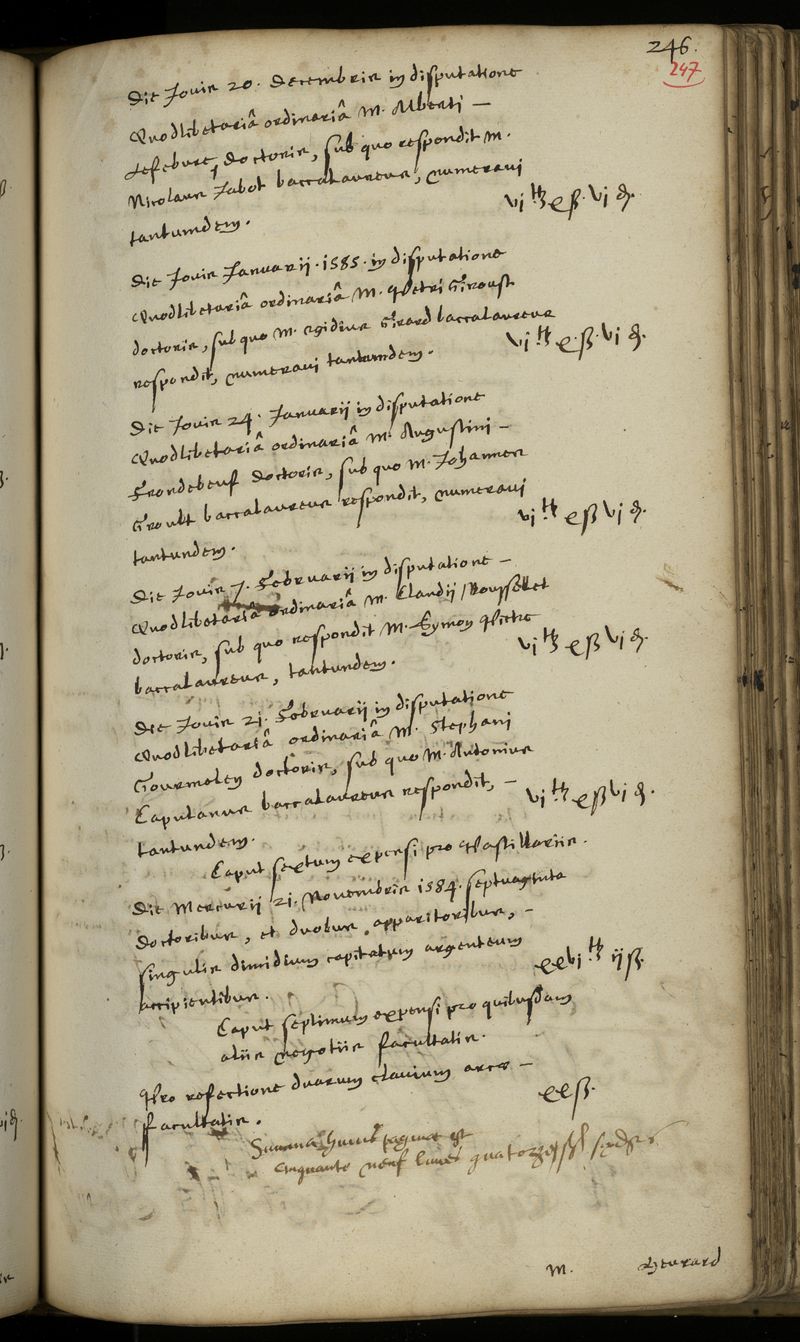 246.
247
Die Jovis 20. Decembris in disputatione
Quodlibetariâ ordinariâ M. Alberti —
Lefebure, doctoris, sub quo respondit M.
Nicolaus Jabot baccalaureus, numeravi
tantumdem. vi ₶ xß. vi d.
Die Jovis Januarij. 1585. in disputatione
Quodlibetariâ ordinariâ M. Petri Giroust
doctoris, sub quo M. Egidius Girard baccalaureus
respondit, numeravi tantumdem. vi ₶ x.ß. vi d.
Die Jovis 24. Januarij in disputatione
Quodlibetariâ ordinariâ M. Augustini —
Frondebeuf doctoris, sub quo M. Johannes
Groult baccalaureus respondit, numeravi
tantundem. vi ₶ xß vi d.
Die Jovis 7. Februarij in disputatione —
Quodlibetariâ ordinariâ M. Claudij Rousselet
doctoris, sub quo respondit M. Symon Pietre
baccalaureus, tantundem. vi ₶ xß vi d.
Die Jovis 21. Februarij in disputatione
Quodlibetariâ ordinariâ M. Stephani
Gourmelen doctoris, sub quo M. Antonius
Caputanus baccalaureus respondit, —
tantundem. vi ₶ xß vi d.
Caput sextum expensi pro Pastillariis.
Die Mercurij 21. Novembris 1584. septuaginta
doctoribus, et duobus apparitoribus, —
singulis dimidium capitatum argenteum
accipientibus. xxvi ₶ ijß.
Caput septimum expensi pro quibusdam
aliis negotiis facultatis.
Pro refectione duarum clavium arcæ —
facultatis. xxß.
Summa huius paginæ est
Cinquante neuf livres quatorze s
M. Henrard